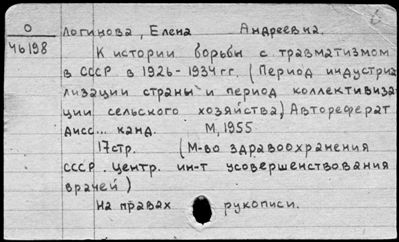 О
46198
Логинова, Елена Андреевна.
К истории борьбы с травматизмом
в СССР в 1926-1934 гг. (Период индустриа
лизации страны и период коллективиза
ции сельского хозяйства) Автореферат
дисс... канд. М, 1955
17стр. (М-во здравоохранения
СССР. Центр. ин-т усовершенствования
врачей)
На правах рукописи.